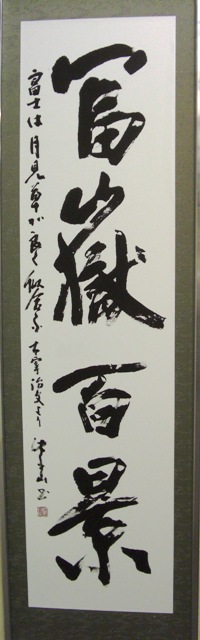 富嶽百景
富士は月見草が良く似合う 太宰治文より